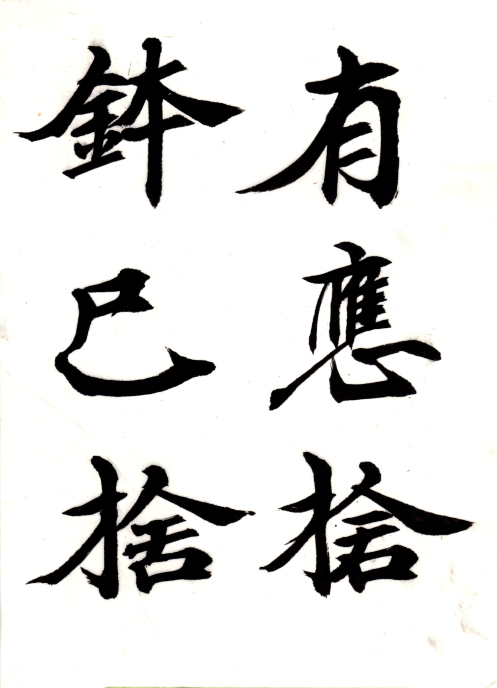 有應捨
鉢已捨